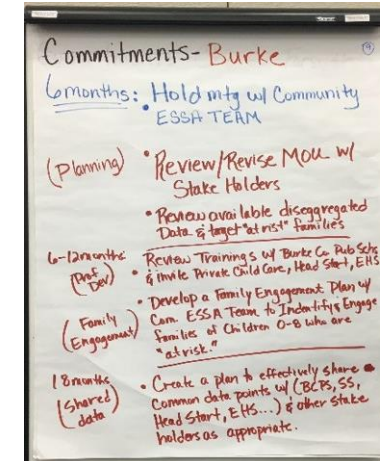 Commitments - Burke
6 months: • Hold mtg w/ Community
ESSA TEAM
(Planning) • Review/Revise MOU w/
Stake Holders
• Review available diseggregated
Data & target "at risk" families
6-12 months: Review Trainings w/ Burke Co. Pub Schs
(Prof Dev) & invite Private Child Care, Head Start, EHS
• Develop a Family Engagement Plan w/
(Family Engagement) Com. ESSA Team to Indentify & Engage
families of Children 0-8 who are
"at risk."
18 months • Create a plan to effectively share
(Shared data) Common data points w/ (BCPS, SS,
Head Start, EHS...) & other Stake
holders as appropriate.